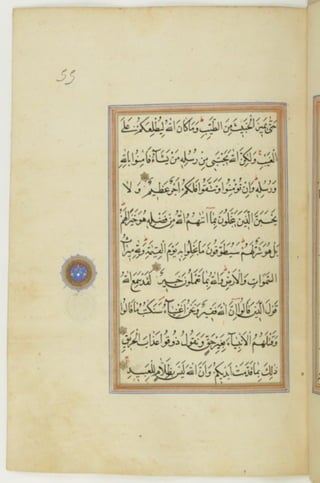 55
حَتّٰى يَمِيزَ الْخَبِيثَ مِنَ الطَّيِّبِ وَمَا كَانَ اللّٰهُ لِيُطْلِعَكُمْ عَلَى
الْغَيْبِ وَلٰكِنَّ اللّٰهَ يَجْتَبِي مِنْ رُسُلِهِ مَنْ يَشَآءُ فَاٰمِنُوا بِاللّٰهِ
وَرُسُلِهِ وَاِنْ تُؤْمِنُوا وَتَتَّقُوا فَلَكُمْ اَجْرٌ عَظِيمٌ وَلَا
يَحْسَبَنَّ الَّذِينَ يَبْخَلُونَ بِمَٓا اٰتٰيهُمُ اللّٰهُ مِنْ فَضْلِهِ هُوَ خَيْرًا لَهُمْ
بَلْ هُوَ شَرٌّ لَهُمْ سَيُطَوَّقُونَ مَا بَخِلُوا بِهِ يَوْمَ الْقِيٰمَةِ وَلِلّٰهِ مِيرَاثُ
السَّمٰوَاتِ وَالْاَرْضِ وَاللّٰهُ بِمَا تَعْمَلُونَ خَبِيرٌ لَقَدْ سَمِعَ اللّٰهُ
قَوْلَ الَّذِينَ قَالُوا اِنَّ اللّٰهَ فَقِيرٌ وَنَحْنُ اَغْنِيَآءُ سَنَكْتُبُ مَا قَالُوا
وَقَتْلَهُمُ الْاَنْبِيَآءَ بِغَيْرِ حَقٍّ وَنَقُولُ ذُوقُوا عَذَابَ الْحَرِيقِ
ذٰلِكَ بِمَا قَدَّمَتْ اَيْدِيكُمْ وَاَنَّ اللّٰهَ لَيْسَ بِظَلَّامٍ لِلْعَبِيدِ